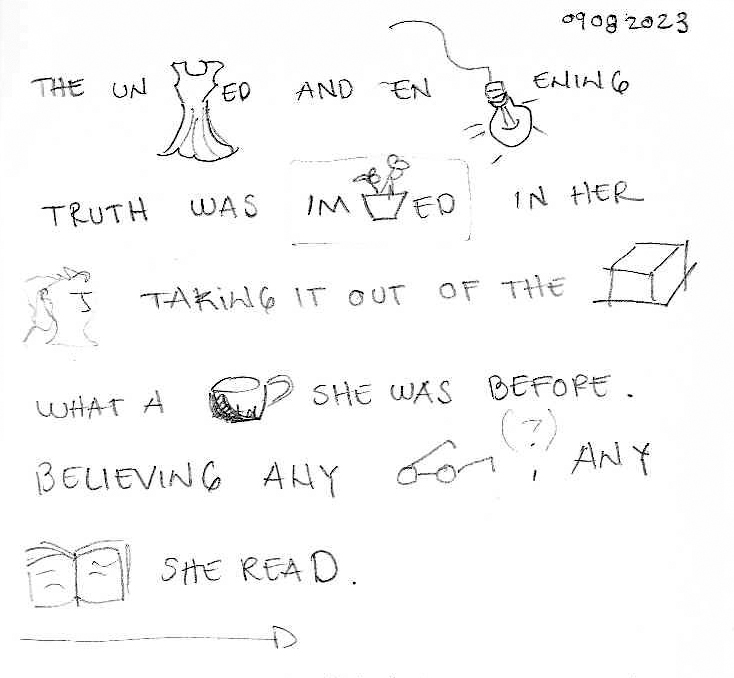 09082023
THE UN ED AND EN ENING
TRUTH WAS IM ED IN HER
TAKING IT OUT OF THE
WHAT A SHE WAS BEFORE.
BELIEVING ANY (?), ANY
SHE READ.